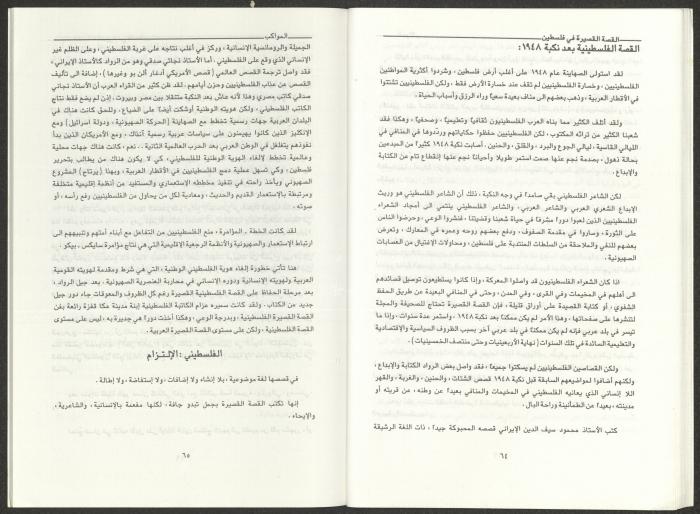 القصة القصيرة في فلسطين
القصة الفلسطينية بعد نكبة ١٩٤٨ :
لقد استولى الصهاينة عام ١٩٤٨ على أغلب أرض فلسطين، وشردوا أكثرية المواطنين
الفلسطينيين، وخسارة الفلسطينيين لم تقف عند خسارة الأرض فقط، ولكن الفلسطينيين تشتتوا
في الأقطار العربية، وذهب بعضهم الى مناف بعيدة سعياً وراء الرزق وأسباب الحياة .
ولقد أتلف الكثير مما بناه العرب الفلسطينيون ثقافياً وتعليمياً، وصحفياً، وهكذا فقد
شعبنا الكثير من تراثه المكتوب، لكن الفلسطينيين حفظوا حكاياتهم ورددوها في المنافي في
الليالي القاسية، ليالي الجوع والبرد، والقلق، والحنين، أصابت نكبة ١٩٤٨ كثيراً من المبدعين
بحالة ذهول، بصدمة نجم عنها صمت استمر طويلاً وأحياناً نجم عنها إنقطاع تام عن الكتابة
والإبداع .
لكن الشاعر الفلسطيني بقي صامداً في وجه النكبة، ذلك أن الشاعر الفلسطيني هو وريث
الإبداع الشعري العربي والشاعر العربي، والشاعر الفلسطيني ينتمي الى أمجاد الشعراء
الفلسطينيين الذين لعبوا دوراً مشرفاً في حياة شعبنا وقضيتنا، فنشروا الوعي، وحرضوا الناس
على الثورة، وساروا في مقدمة الصفوف، ودفع بعضهم روحه وعمره في المعارك، وتعرض
بعضهم للنفي والملاحقة من السلطات المنتدبة على فلسطين، ومحاولات الإغتيال من العصابات
الصهيونية .
اذا كان الشعراء الفلسطينيون قد واصلوا المعركة، وإذا كانوا يستطيعون توصيل قصائدهم
الى أهلهم في المخيمات وفي القرى، وفي المدن، وحتى في المنافي البعيدة عن طريق الحفظ
الشفوي، أو كتابة القصيدة على أوراق قليلة، فإن القصة القصيرة تحتاج للصحيفة والمجلة
لنشرها على صفحاتها، وهذا الأمر لم يكن ممكناً بعد نكبة ١٩٤٨، واستمر عدة سنوات، وإذا ما
تيسر في بلد عربي فإنه لم يكن ممكناً في بلد عربي آخر بسبب الظروف السياسية والإقتصادية
والتعليمية السائدة في تلك السنوات ( نهاية الأربعينيات وحتى منتصف الخمسينيات ) .
ولكن القصاصين الفلسطينيين لم يسكتوا جميعاً، فقد واصل بعض الرواد الكتابة والإبداع،
ولكنهم أضافوا لمواضيعهم السابقة قبل نكبة ١٩٤٨ قصص الشتات، والحنين، والغربة، والقهر
اللا إنساني الذي يعانيه الفلسطيني في المخيمات والمنافي بعيداً عن وطنه، من قريته أو
مدينته، بعيداً عن الطمأنينة وراحة البال .
كتب الأستاذ محمود سيف الدين الإيراني قصصه المحبوكة جيداً، ذات اللغة الرشيقة
٦٤
المواكب
الجميلة والرومانسية الإنسانية، وركز في أغلب نتاجه على غربة الفلسطيني، وعلى الظلم غير
الإنساني الذي وقع على الفلسطيني، أما الأستاذ نجاتي صدقي وهو من الرواد كالأستاذ الإيراني،
فقد واصل ترجمة القصص العالمي ( قصص الأمريكي أدغار ألن بو وغيرها )، إضافة الى تأليف
القصص عن عذاب الفلسطينيين وحزن أيامهم . لقد ظن كثير من القراء العرب أن الأستاذ نجاتي
صدقي كاتب مصري وهذا لأنه عاش بعد النكبة متنقلا بين مصر وبيروت، إذن لم يضع فقط نتاج
الكاتب الفلسطيني، ولكن هويته الوطنية أوشكت أيضاً على الضياع، وللحق كانت هناك في
البلدان العربية جهات رسمية تخطط مع الصهاينة ( الحركة الصهيونية، ودولة اسرائيل ) ومع
الإنكليز الذين كانوا يهيمنون على سياسات عربية رسمية آنذاك، ومع الأمريكان الذين بدأ
نفوذهم يتغلغل في الوطن العربي بعد الحرب العالمية الثانية .. نعم، كانت هناك جهات محلية
وعالمية تخطط لألغاء الهوية الوطنية للفلسطيني، كي لا يكون هناك من يطالب بتحرير
فلسطين، وكي تسهل عملية دمج الفلسطينيين في الأقطار العربية، وبهذا ( يرتاح ) المشروع
الصهيوني ويأخذ راحته في تنفيذ مخططه الإستعماري والمستفيد من أنظمة إقليمية متخلفة
ومرتبطة بالإستعمار القديم والحديث، ومعادية لكل من يحاول من الفلسطينيين رفع رأسه، أو
صوته .
لقد كانت الخطة . المؤامرة، منع الفلسطينيين من التفاعل مع أبناء أمتهم وتنبيههم الى
ارتباط الإستعمار والصهيونية والأنظمة الرجعية الإقليمية التي هي نتاج مؤامرة سايكس . بيكو .
هنا تأتي خطورة إلغاء هوية الفلسطيني الوطنية، التي هي شرط ومقدمة لهويته القومية
العربية ولهويته الإنسانية ودوره الإنساني في محاربة العنصرية الصهيونية، بعد جيل الرواد،
بعد مرحلة الحفاظ على القصة الفلسطينية القصيرة رغم كل الظروف والمعوقات جاء دور جيل
جديد من الكتاب، ولقد كانت سميره عزام الكاتبة الفلسطينية إبنة مدينة عكا قفزة رائعة بفن
القصة القصيرة الفلسطينية، وبدرجة الوعي، وهكذا أخذت دوراً هي جديرة به، ليس على مستوى
القصة الفلسطينية، ولكن على مستوى القصة القصيرة العربية .
الفلسطيني : الإلتـزام
في قصصها لغة موضوعية، بلا إنشاء ولا إضافات، ولا إستفاضة، ولا إطالة .
إنها تكتب القصة القصيرة بجمل تبدو جافة، لكنها مفعمة بالإنسانية، والشاعرية،
والإيحاء .
٦٥